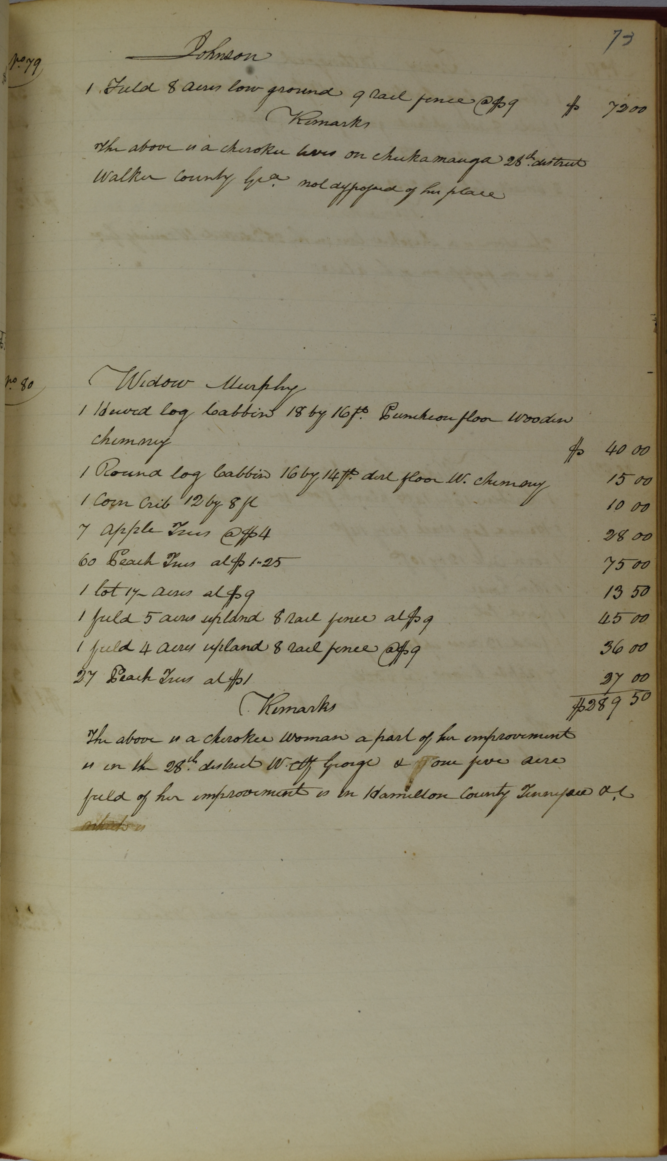 73
No 79 Johnson
1 Field 8 acres low ground 9 rail fence @ $9 $ 72 00
Remarks
The above is a cherokee lives on chickamauga 28th district
Walker County Gea. not disposed of his place
No 80 Widow Murphy
1 Hewed log Cabbin 18 by 16 ft. Puncheon floor Wooden
chimney $ 40 00
1 Round log Cabbin 16 by 14 ft. dirt floor W. chimney 15 00
1 Corn Crib 12 by 8 ft 10 00
7 apple Trees @ $4 28 00
60 Peach Trees at $1-25 75 00
1 lot acres at $9 13 50
1 field 5 acres upland 8 rail fence at $9 45 00
1 field 4 acres upland 8 rail fence @ $9 36 00
27 Peach Trees at $1 27 00
Remarks $289 50
The above is a cherokee woman a part of her improvement
is in the 28th district W. George & one five acre
field of her improvement is in Hamilton County Tennessee